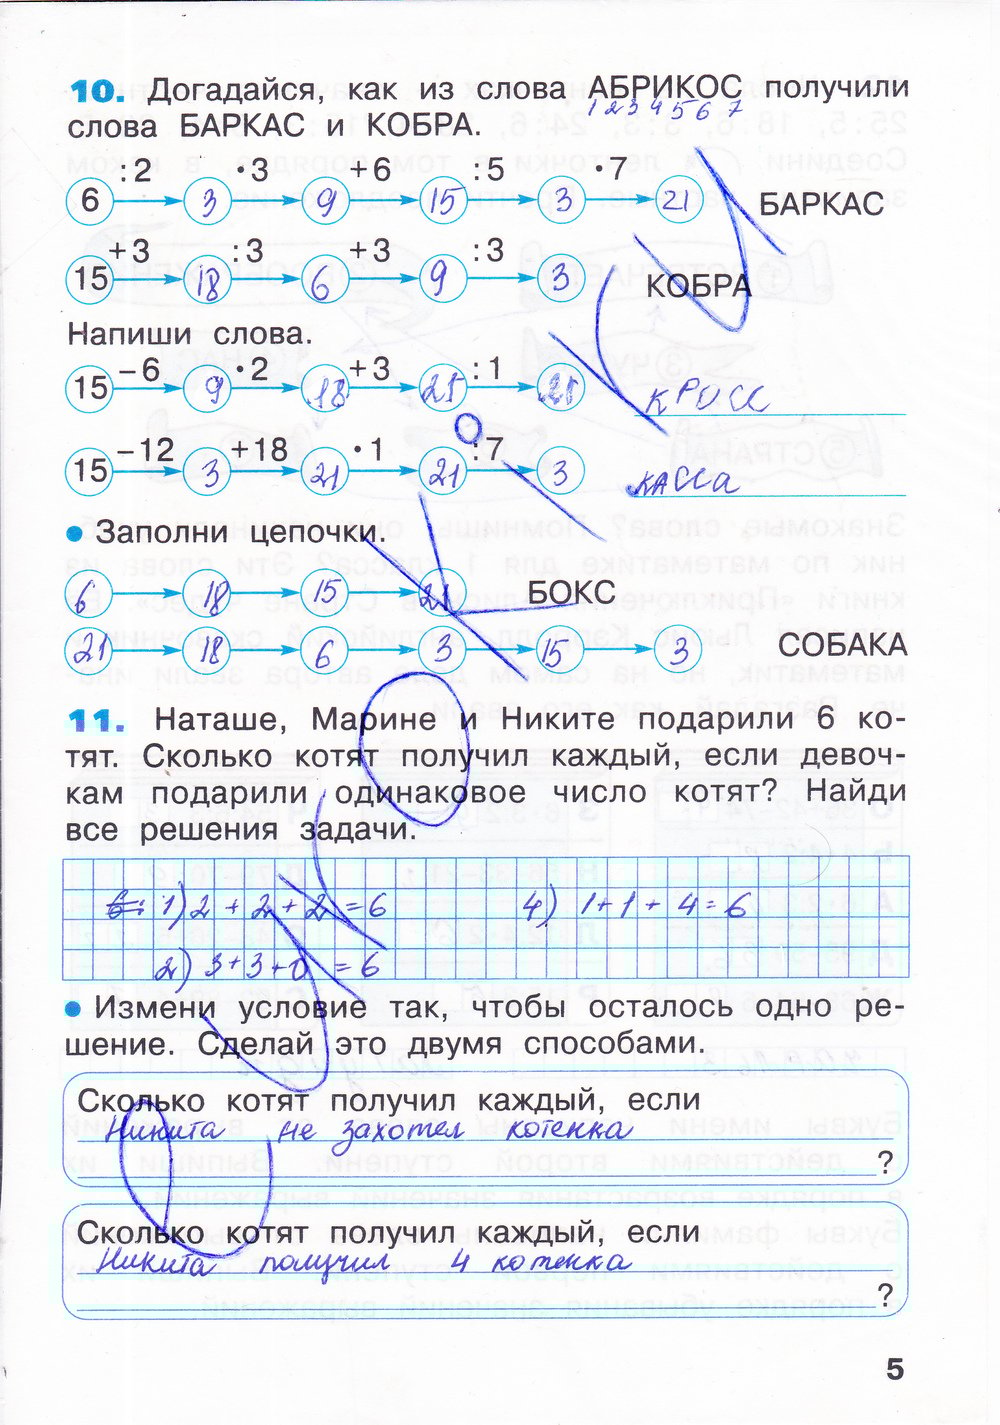 10. Догадайся, как из слова АБРИКОС получили
1 2 3 4 5 6 7
слова БАРКАС и КОБРА.
:2 •3 +6 :5 •7
6 3 9 15 3 21 БАРКАС
+3 :3 +3 :3
15 18 6 9 3 КОБРА
Напиши слова.
−6 •2 +3 :1
15 9 18 21 21 КРОСС
−12 +18 •1 :7
15 3 21 21 3 КАССА
• Заполни цепочки.
6 18 15 21 БОКС
21 18 6 3 15 3 СОБАКА
11. Наташе, Марине и Никите подарили 6 ко-
тят. Сколько котят получил каждый, если девоч-
кам подарили одинаковое число котят? Найди
все решения задачи.
6: 1) 2 + 2 + 2 = 6 4) 1 + 1 + 4 = 6
2) 3 + 3 + 0 = 6
• Измени условие так, чтобы осталось одно ре-
шение. Сделай это двумя способами.
Сколько котят получил каждый, если
Никита не захотел котенка
?
Сколько котят получил каждый, если
Никита получил 4 котенка
?
5